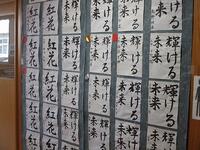 輝ける
未来
輝ける
未来
輝ける
未来
紅花
紅花
輝ける
未来
輝ける
未来
輝ける
未来
紅花
紅花
輝ける
未来
輝ける
未来
輝ける
未来
紅花
紅花
輝ける
未来
輝ける
未来
輝ける
未来
紅花
紅花